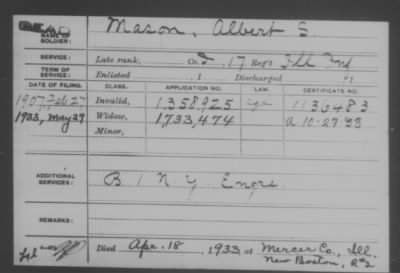 DEAD
NAME OF SOLDIER: Mason, Albert S.
SERVICE: Late rank, Co. I, 17 Reg't Ill Inf
TERM OF SERVICE: Enlisted , 1 Discharged , 1
DATE OF FILING. CLASS. APPLICATION NO. LAW. CERTIFICATE NO.
1907, Feb 27 Invalid, 1,358,925 age 1136483
1933, May 29 Widow, 1733,474 A 10-27-33
Minor,
ADDITIONAL SERVICES: B 1 N.Y. Engrs.
REMARKS:
Died Apr. 18, 1933, at Mercer Co., Ill.
New Boston, R#2